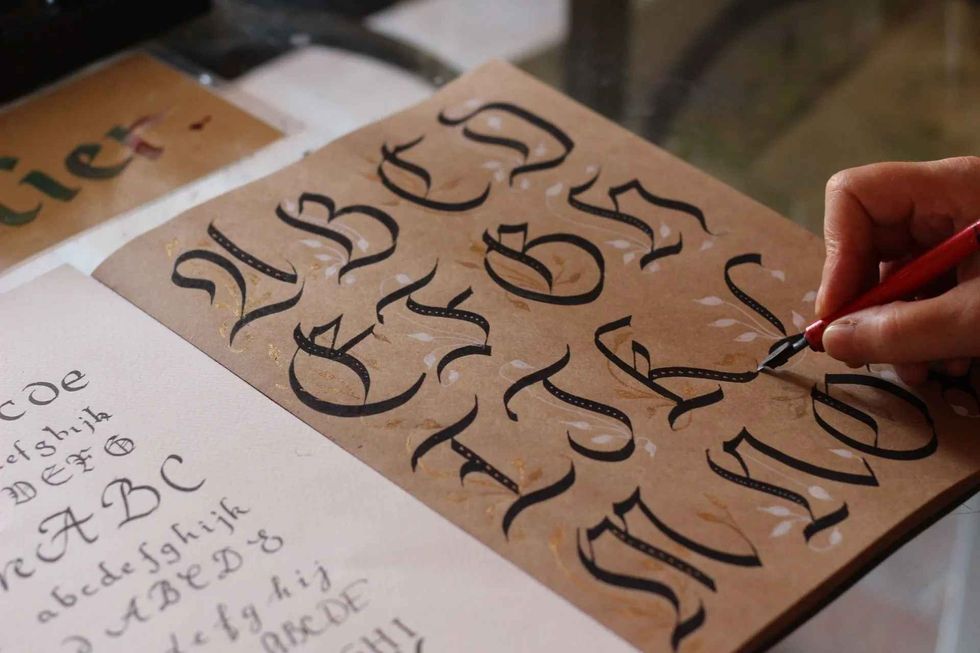 tier
A B C D
E F G H
I J K L
M N O
CDe
efghijk
DEFG
ABC
abcdefghijk
ABCDE
defghij
ABCDE
GHI